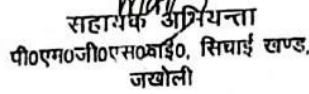 सहायक अभियन्ता
पी०एम०जी०एस०वाई०, सिंचाई खण्ड,
जखोली